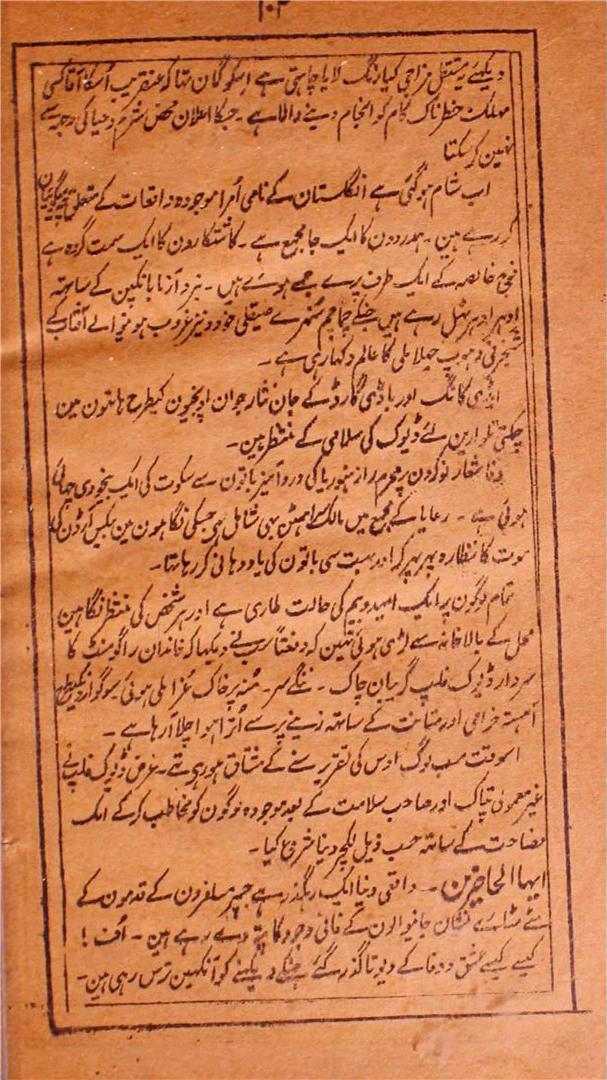 ۱۰۲
دیکھئے مستقل مزاجی کیا رنگ لایا چاہتی ہے اسکو گمان تھا کہ عنقریب اُسکا آقا کسی
مہلک خطرناک کام کو انجام دینے والا ہے۔ جسکا اعلان محض شرم و حیا کی وجہ سے
نہین کر سکتا
اب شام ہو گئی ہے انگلستان کے نامی اُمرا موجودہ واقعات کے متعلق چہ میگوئیان
کر رہے ہین۔ ہمدردون کا ایک جا مجمع ہے۔ کاشتکارون کا ایک سمت گروہ ہے
فوج خالصہ کے ایک طرف پرے جمے ہوئے ہیں۔ نبرد آزما بانکپن کے ساتھہ
اِدہر اُدہر ٹہل رہے ہیں جنکے چماچم سُنہرے صیقلی خود و نیز غروب ہونیوالے آفتاب کے
شنجرفی دہوپ جہلا بلی کا عالم دکھا رہی ہے۔
ایڈی کانگ اور باڈی گارڈ کے جان نثار جوان اوپچیون کیطرح ہاتھون مین
چمکتی تلوارین لئے ڈیوک کی سلامی کے منتظر ہین۔
وفا شعار نوکرون پر محرم راز منہوریا کی درد آمیز باتون سے سکوت کی ایک بیخودی چہائی
ہوئی ہے۔ رعایا کے مجمع میں مالک اہمٹن بہی شامل ہی جسکی نگاہون مین بکیس آرڈن کی
موت کا نظارہ پہر پہر کر اور بہت سی باتون کی یاد دہانی کر رہا تہا۔
تمام لوگون پر ایک امید و بیم کی حالت طاری ہے اور ہر شخص کی منتظر نگاہین
محل کے بالا خانہ سے لڑی ہوئی تہین کہ دفعتاً سب نے دیکہا کہ خاندان راگومنٹ کا
سردار ڈیوک فلپ گریبان چاک۔ ننگے سر۔ مُنہ پر خاک عزا ملی ہوئی سوگوارونکیطرح
آہستہ خرامی اور متانت کے ساتھہ زینے پر سے اُترا ہوا چلا آ رہا ہے۔
اسوقت سب لوگ اوس کی تقریر سننے کے مشتاق ہو رہی تہے۔ غرض ڈیوک فلپ نے
غیر معمولی تپاک اور صاحب سلامت کے بعد موجودہ لوگون کو مخاطب کر کے ایک
فصاحت کے ساتہہ حسب ذیل لکچر دینا شروع کیا۔
ایہا الحاضرین۔۔ واقعی دنیا ایک رہگذر ہے جسپر مسافرون کے قدمون کے
مٹے مٹائے نشان جانیوالون کے فانی وجود کا پتہ دے رہے ہین۔ اُف!
کیسے کیسے عشق و وفا کے دیوتا گذر گئے جنکے دیکہنے کو آنکہین ترس رہی ہین۔